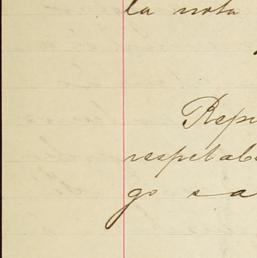 la nota
Repi
respetab
go sa